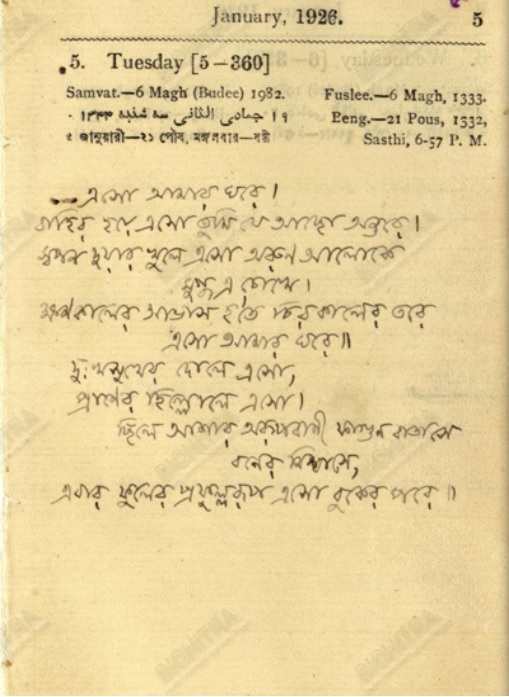 January, 1926. 5
5. Tuesday [5–360]
Samvat.—6 Magh (Budee) 1982. Fuslee.—6 Magh, 1333.
١٩ جمادي الثاني سه شنبه ١٣٤٤ Beng.—21 Pous, 1332,
৫ জানুয়ারী—২১ পৌষ, মঙ্গলবার—ষষ্ঠী Sasthi, 6-57 P. M.
এসো আমার ঘরে।
বাহির হয়ে এসো তুমি যে আছো অন্তরে।
স্বপন দুয়ার খুলে এসো অরুণ আলোকে
মুগ্ধ এ চোখে।
ক্ষণকালের আভাস হতে চিরকালের তরে
এসো আমার ঘরে॥
দুঃখসুখের দোলে এসো,
প্রাণের হিল্লোলে এসো।
ছিলে আশার অরূপবাণী ফাগুন বাতাসে
বনের নিশ্বাসে,
এবার ফুলের প্রফুল্লরূপ এসো বুকের পরে॥